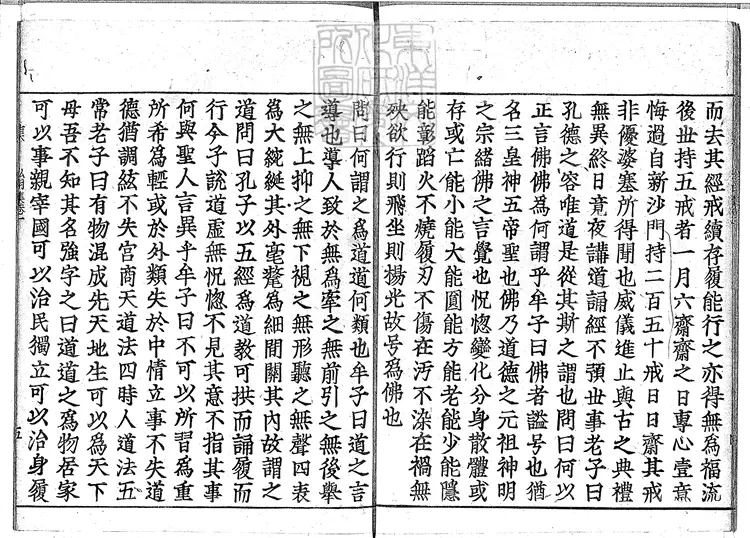 而去其經戒續存履能行之亦得無為福流
後世持五戒者一月六齋齋之日專心壹意
悔過自新沙門持二百五十戒日日齋其戒
非優婆塞所得聞也威儀進止與古之典禮
無異終日竟夜講道誦經不預世事老子曰
孔德之容唯道是從其斯之謂也問曰何以
正言佛佛為何謂乎牟子曰佛者謚号也猶
名三皇神五帝聖也佛乃道德之元祖神明
之宗緒佛之言覺也怳惚變化分身散體或
存或亡能小能大能圓能方能老能少能隱
能彰蹈火不燒履刃不傷在汚不染在禍無
殃欲行則飛坐則揚光故号為佛也
問曰何謂之為道道何類也牟子曰道之言
導也導人致於無為牽之無前引之無後舉
之無上抑之無下視之無形聽之無聲四表
為大綩綖其外毫氂為細間關其內故謂之
道問曰孔子以五經為道教可拱而誦履而
行今子說道虛無怳惚不見其意不指其事
何與聖人言異乎牟子曰不可以所習為重
所希為輕或於外類失於中情立事不失道
德猶調絃不失宮商天道法四時人道法五
常老子曰有物混成先天地生可以為天下
母吾不知其名強字之曰道道之為物居家
可以事親宰國可以治民獨立可以治身履
五